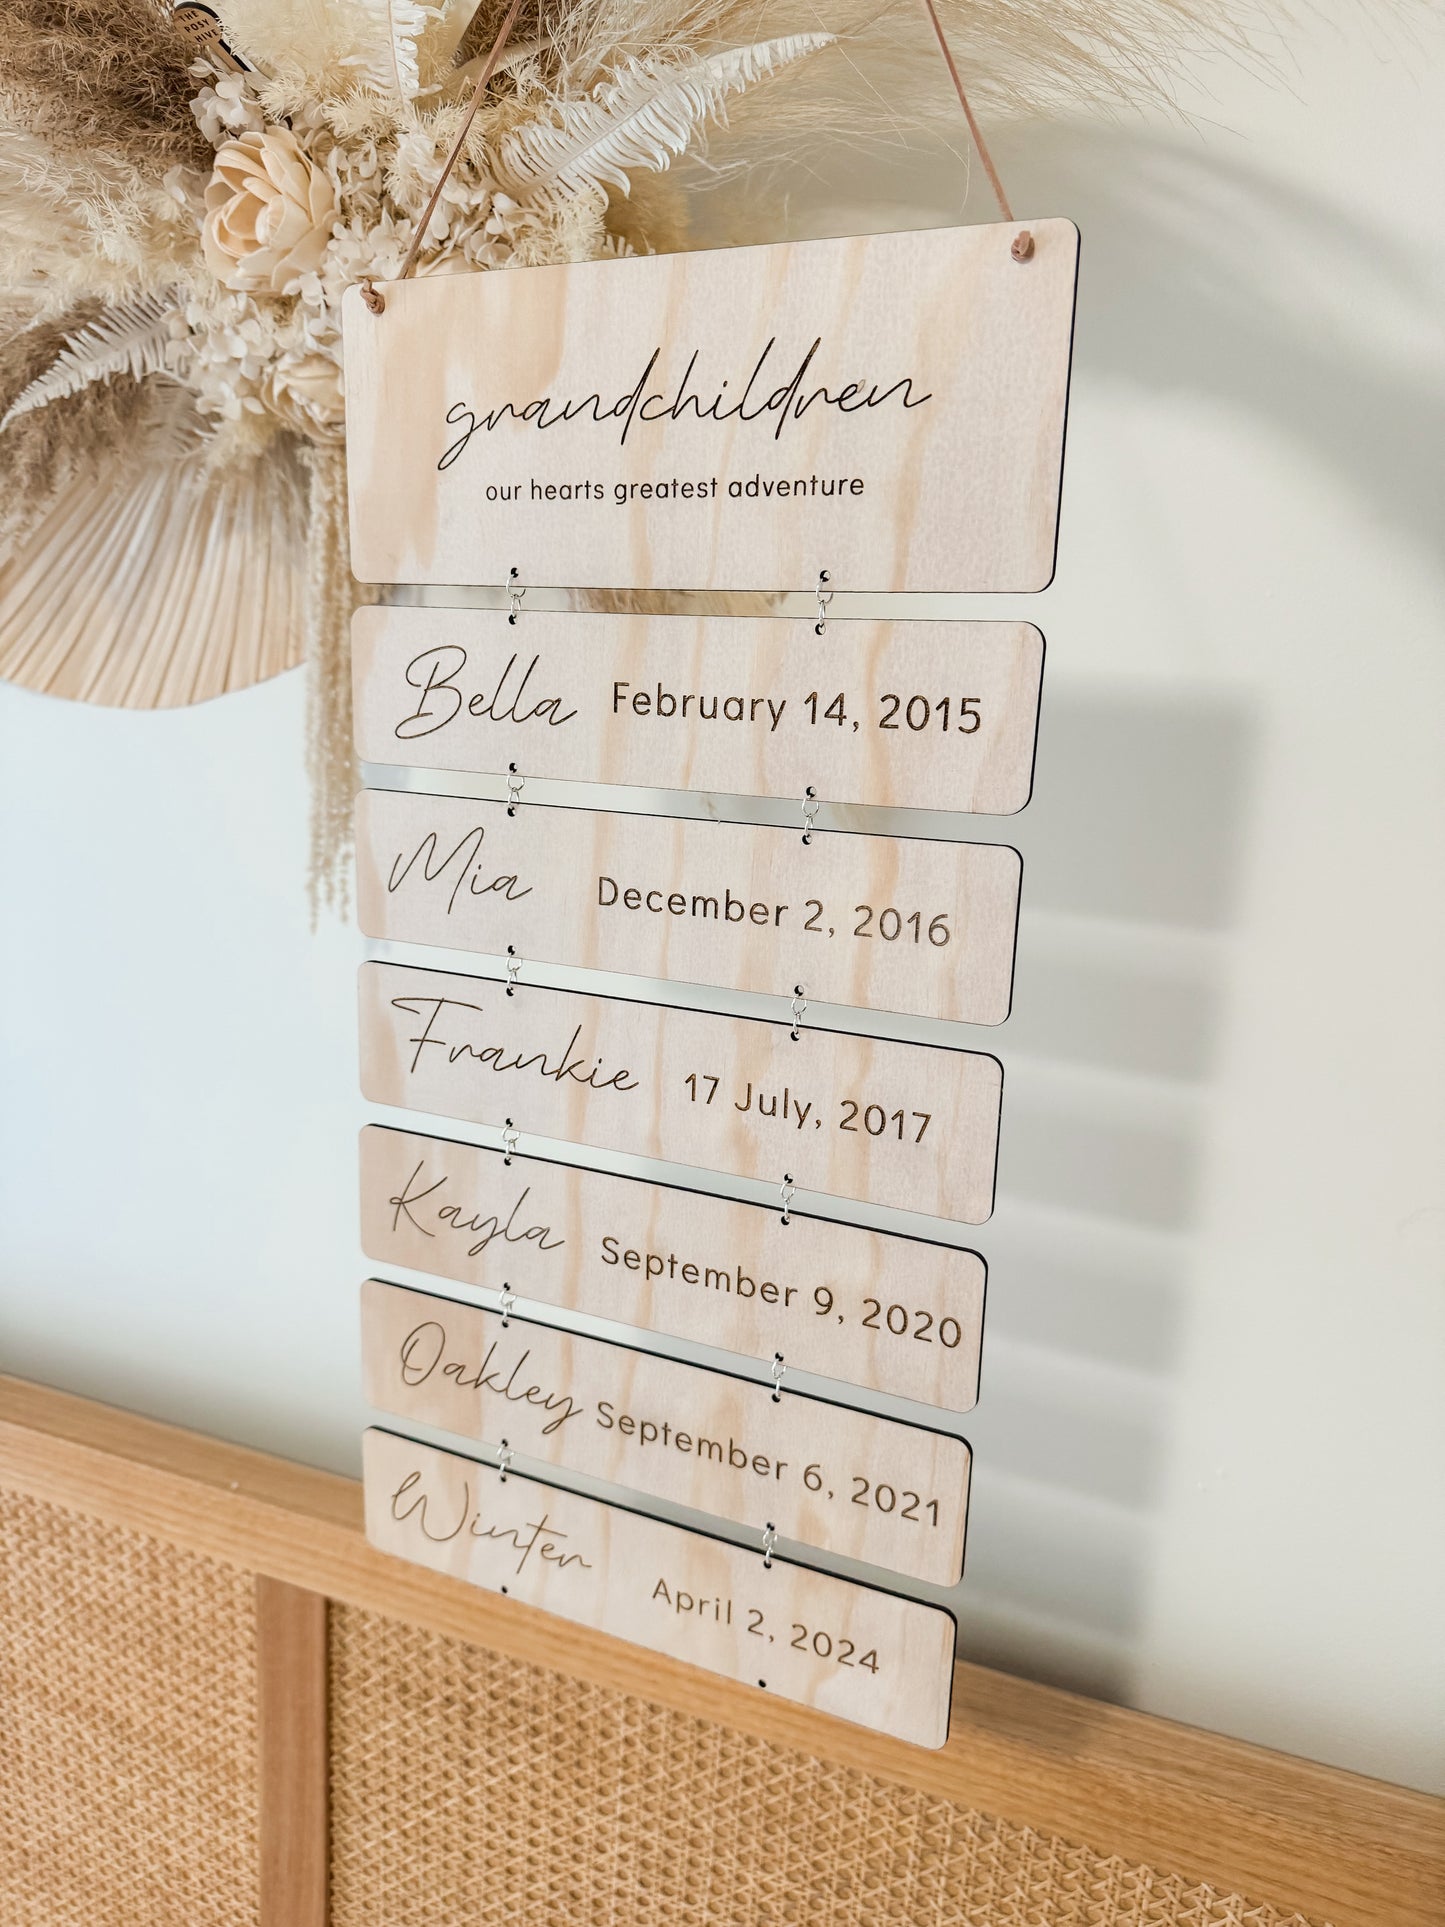 THE
POSY
HIVE
grandchildren
our hearts greatest adventure
Bella February 14, 2015
Mia December 2, 2016
Frankie 17 July, 2017
Kayla September 9, 2020
Oakley September 6, 2021
Winter April 2, 2024